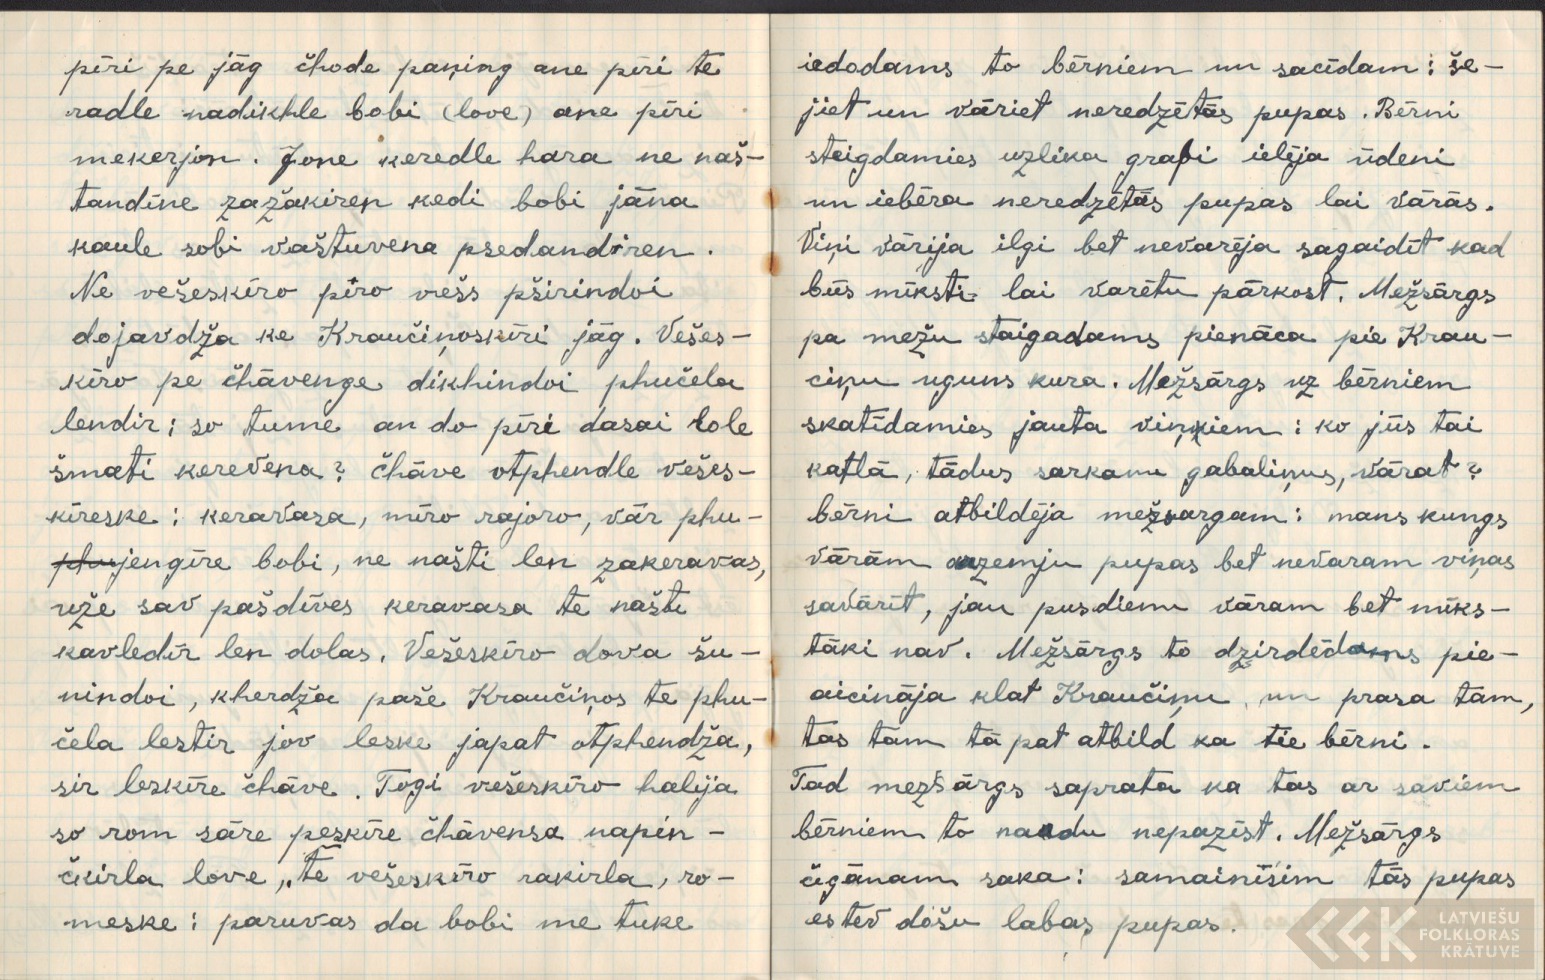 pīri pe jāg čhode paņing ane pīri te
radle nadikhle bobi (love) ane pīri
mekerjon. Jone keredle hara ne naš-
tandīne zažakiren kedi bobi jāna
kaule sobi vaštuvena psedandiren.
Ne vešeskīro pīro vešs pširindoi
dojavdža ke Kraučiņoskīri jāg. Vešes-
kīro pe čhāvenge dikhindoi phučela
lendir; so tume an do pīri dasai lole
šmati kerevena? Čhāve otphendle vešes-
kīreske: keravasa, mīro rajoro, vār phu-
jengīre bobi, ne našti len zakeravas,
uže sav pašdīves keravasa te našti
kavledīr len dolas. Vešeskīro dova šu-
nindoi, kherdža paše Kraučiņos te phu-
čela lestir jov leske japat otphendža,
sir leskīre čhāve. Togi vešeskīro halija
so rom sāre peskīre čhāvensa napin-
čkirla love, „te vešeskīro rakirla, ro-
meske: paruvas da bobi me tuke
iedodams to bērniem un sacīdam: še-
jiet un vāriet neredzētās pupas. Bērni
steigdamies uzlika grapi ielēja ūdeni
un iebēra neredzētās pupas lai vārās.
Viņi vārija ilgi bet nevarēja sagaidīt kad
būs mīksti lai varētu pārkost. Mežsārgs
pa mežu staigadams pienāca pie Krau-
ciņu uguns kura. Mežsārgs uz bērniem
skatīdamies jauta viņķiem: ko jūs tai
katlā, tādus sarkanu gabaliņus, vārat?
bērni atbildēja mežsargam: mans kungs
vārām auzemju pupas bet nevaram viņas
savārīt, jau pusdienu vāram bet mīks-
tāki nav. Mežsārgs to dzirdēdams pie-
aicināja klat Kraučiņu un prasa tam,
tas tam tā pat atbild ka tie bērni.
Tad mezšārgs saprata ka tas ar saviem
bērniem to naudu nepazīst. Mežsārgs
čigānam saka: samainīsim tās pupas
es tev došu labas pupas.
LATVIEŠU
FOLKLORAS
KRĀTUVE